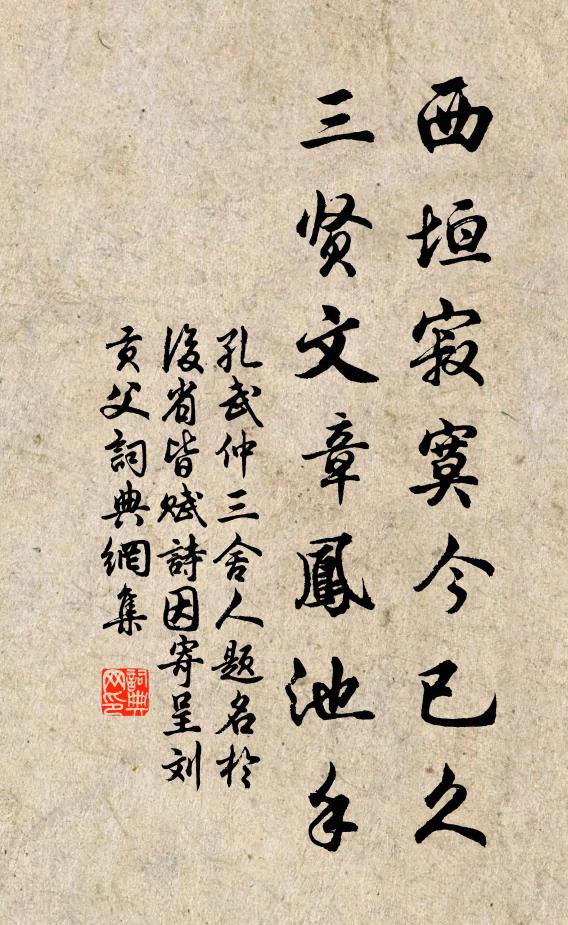 西垣寂寞今已久
三贤文章鳳池手
孔武仲三舍人题名於
後省皆赋詩因寄呈刘
贡父詞典網集
詞典
网印